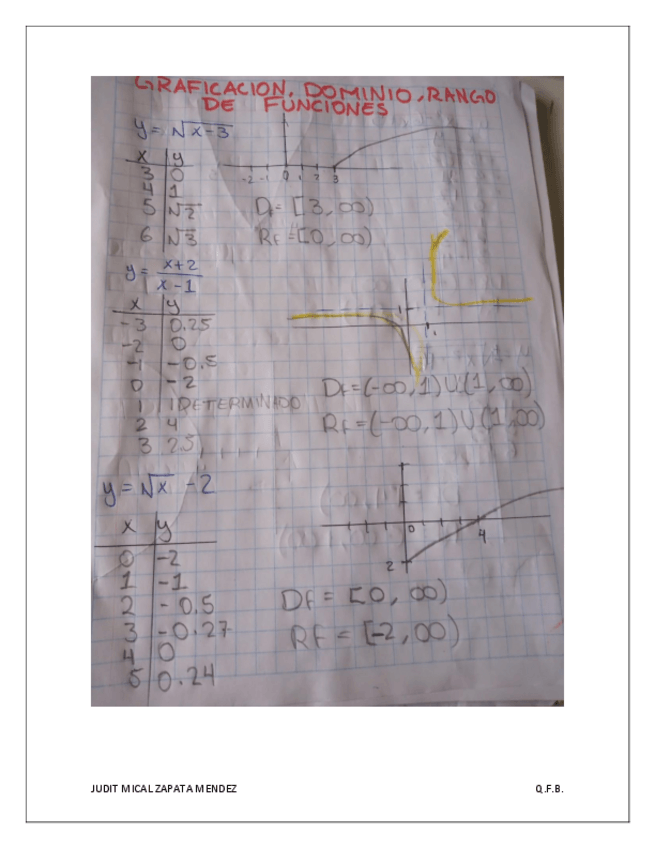 GRAFICACION, DOMINIO, RANGO
DE FUNCIONES
y = √x-3
x y
3 0
4 1
5 √2
6 √3
-2 -1 0 1 2 3
Df = [3, ∞)
Rf = [0, ∞)
y = x+2
x-1
x y
-3 0.25
-2 0
-1 -0.5
0 -2
1 IDETERMINADO
2 4
3 2.5
1
1
Df = (-∞, 1) U (1, ∞)
Rf = (-∞, 1) U (1, ∞)
y = √x - 2
x y
0 -2
1 -1
2 -0.5
3 -0.27
4 0
5 0.24
0
4
2
Df = [0, ∞)
Rf = [-2, ∞)
JUDIT MICAL ZAPATA MENDEZ Q.F.B.